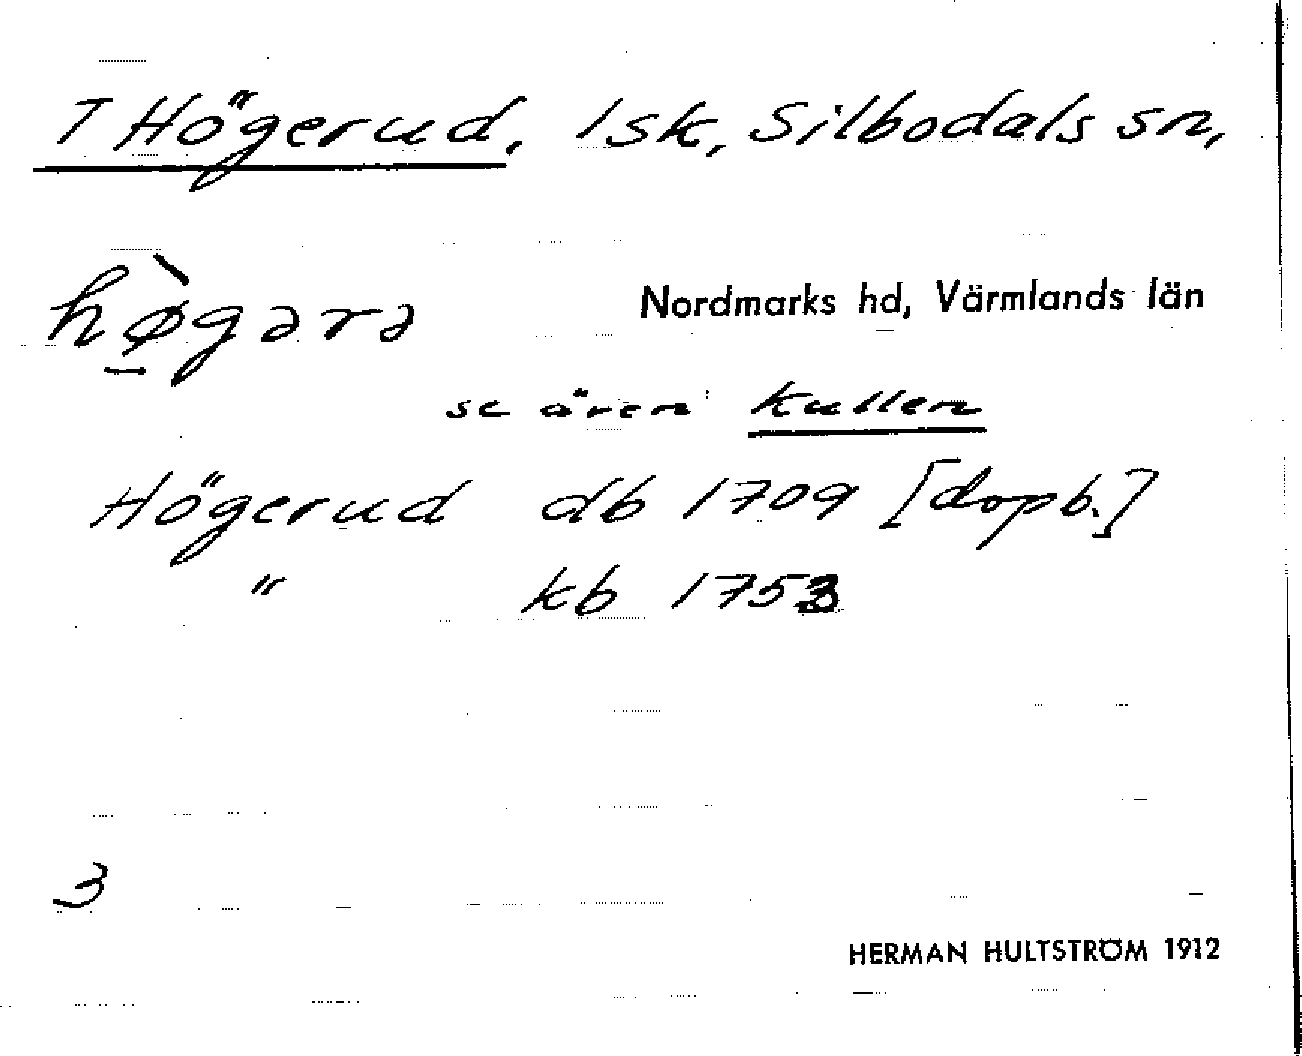 T Högerud, 1sk, Silbodals sn,
hø̀gərə
Nordmarks hd, Värmlands län
se även Kullen
Högerud db 1709 [dopb.]
" kb 1753
3
HERMAN HULTSTRÖM 1912